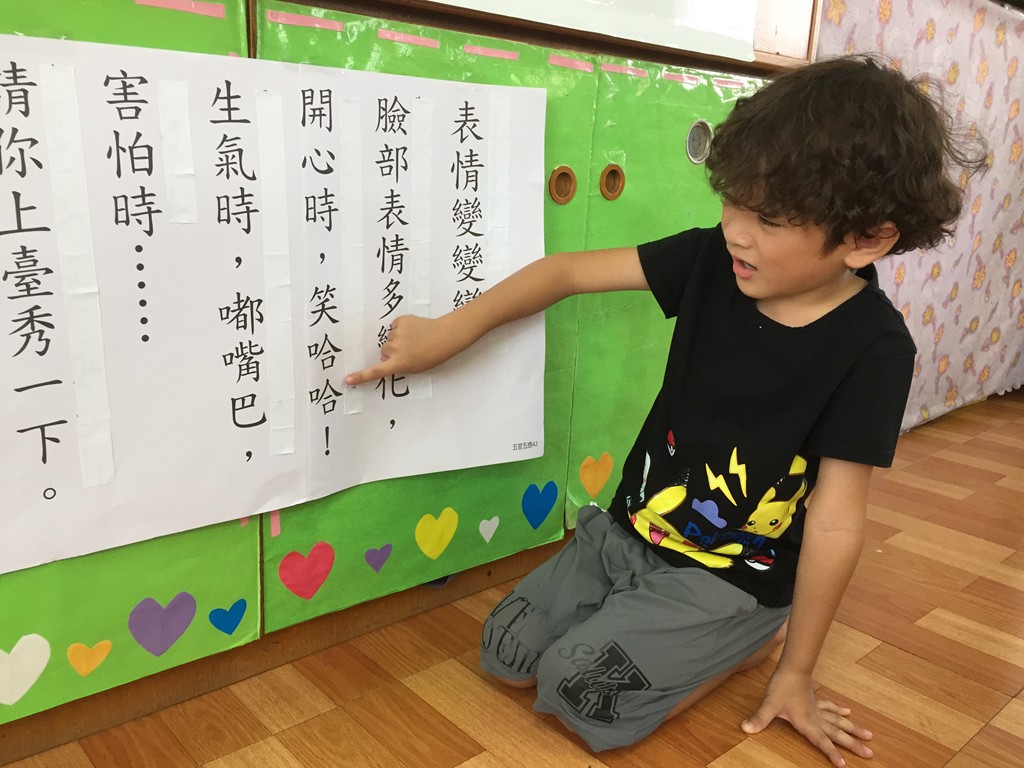 表情變變變
臉部表情多變化，
開心時，笑哈哈！
生氣時，嘟嘴巴，
害怕時……
請你上臺秀一下。
五官五感A3
K